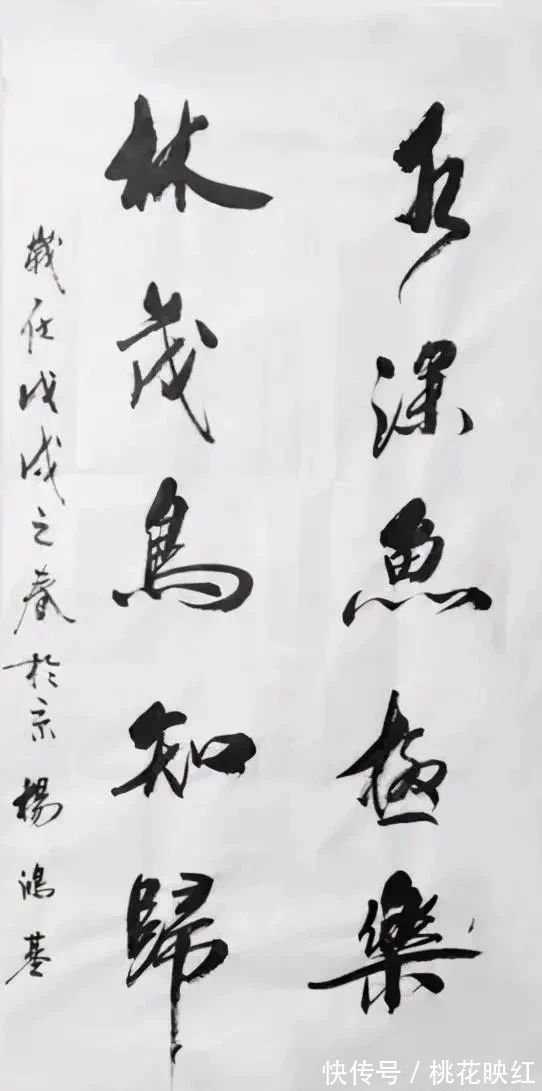 水深魚極樂
林茂鳥知歸
歲在戊戌之春於京 楊鴻基
快传号 / 桃花映红